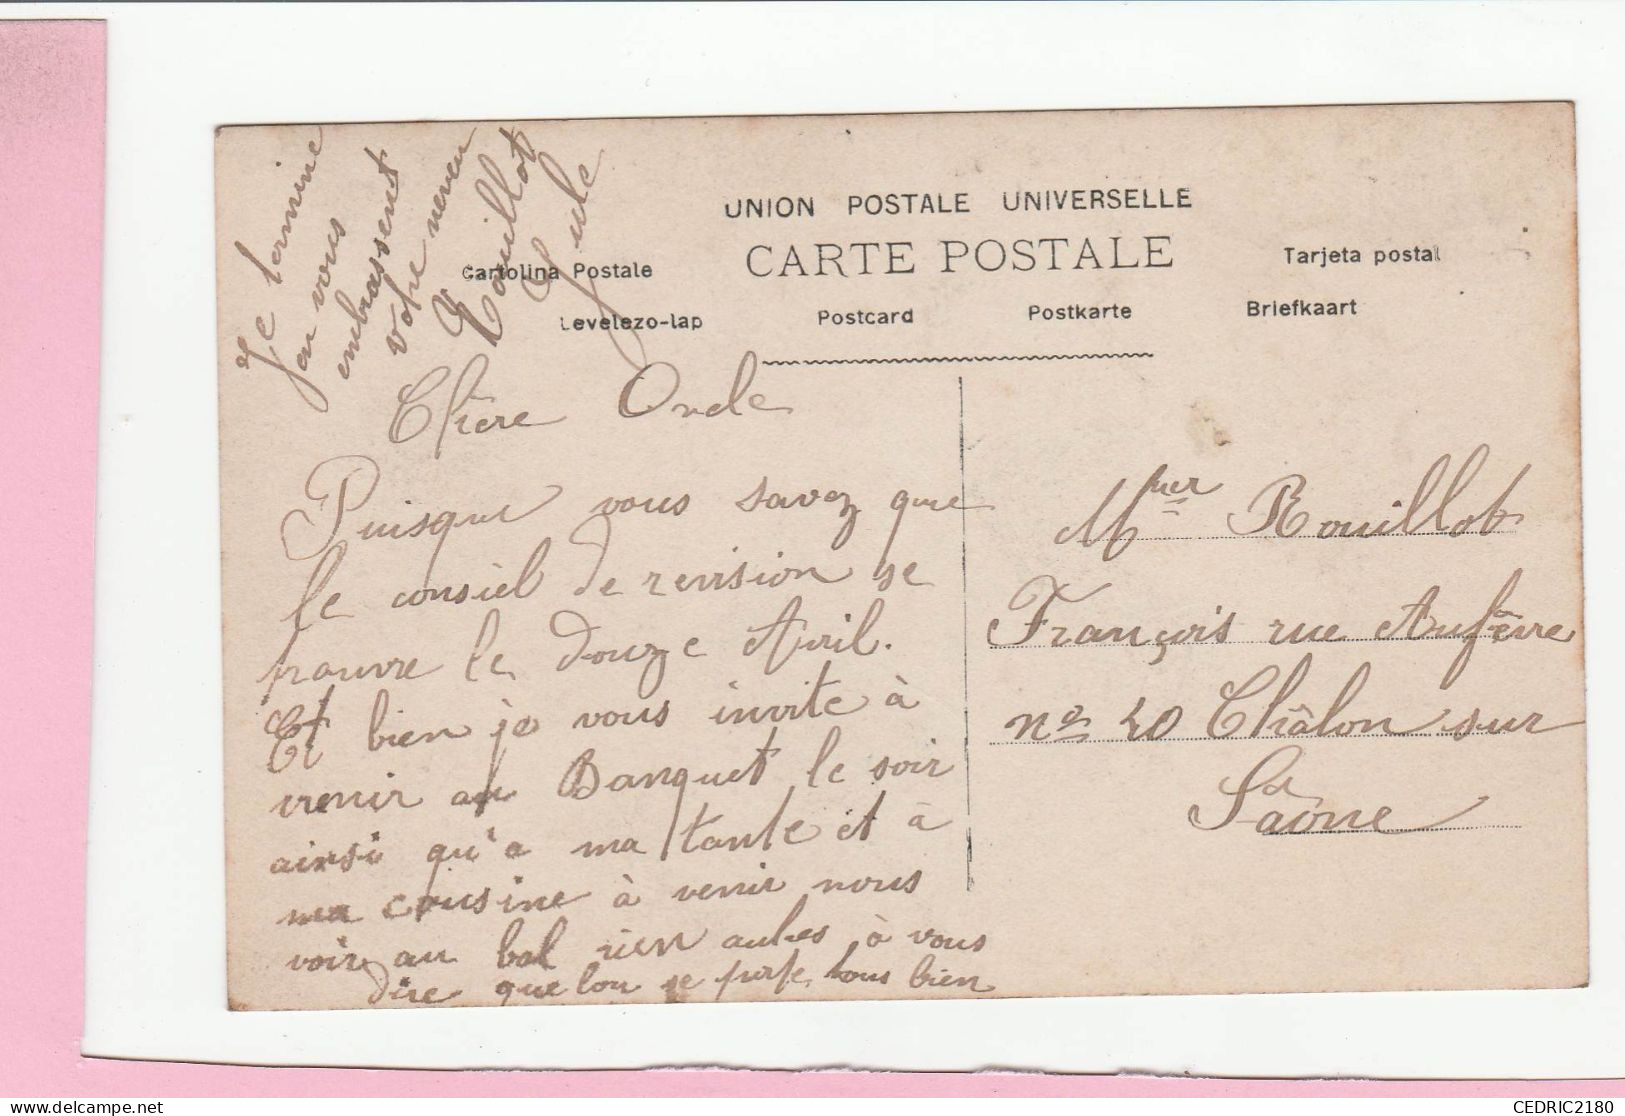 UNION POSTALE UNIVERSELLE
CARTE POSTALE
Cartolina Postale
Tarjeta postal
Levelezo-lap
Postcard
Postkarte
Briefkaart
Chère Oncle
Puisque vous savez que
le consiel de revision se
trouvre le Douze Avril.
Et bien je vous invite à
venir au Banquet le soir
ainsi qu'a ma tante et à
ma cousine à venir nous
voir au bal rien autres à vous
dire que lon se porte tous bien
Je termine
en vous
embrassent
votre neveu
Rouillot
Jule
Mʳ Rouillot
François rue Aufèvre
nº 40 Châlon sur
Sâone
CEDRIC2180